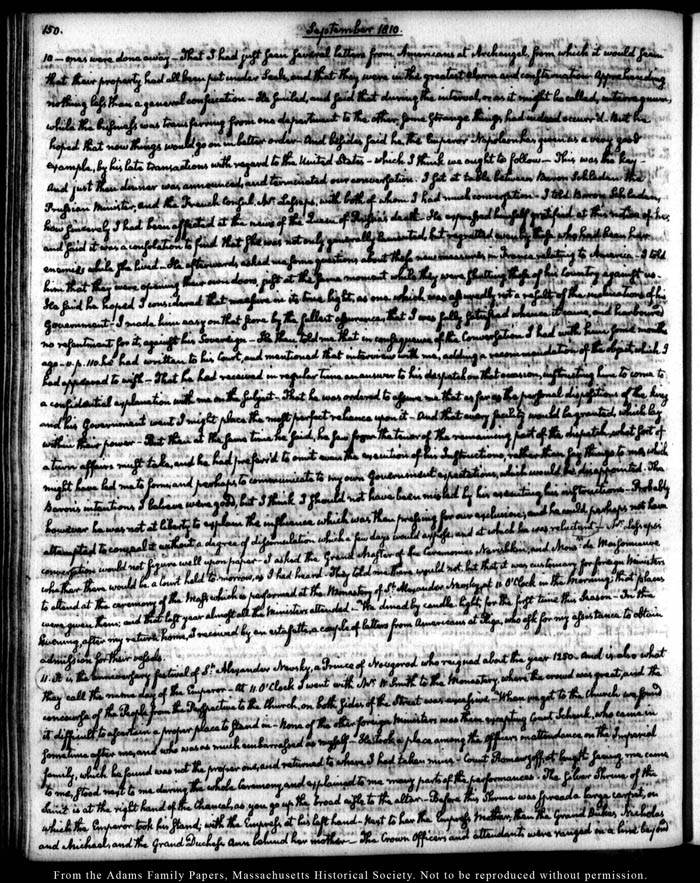 150.
September 1810.
10 — ones were done away — That I had just seen several letters from Americans at Archangel, from which it would seem
that their property had all been put under Seals, and that they were in the greatest alarm and consternation — Apprehending
nothing less than a general confiscation — He smiled, and said that during the interval, or as it might be called, interregnum,
while the business was transferring from one department to the other, some strange things had indeed occurr'd. But he
hoped that now things would go on in better order — And besides said he, the Emperor Napoleon has given us a very good
example, by his late transactions with regard to the United States — which I think we ought to follow — This was the key —
And just then dinner was announced, and terminated our conversation. I sat at table between Baron Schladen the
Prussian Minister, and the French Consul, Mr Lesseps, with both of whom I had much conversation — I told Baron Schladen,
how sincerely I had been affected at the news of the Queen of Prussia's death. He expressed himself gratified at this notice of her,
and said it was a consolation to find that she was not only generally lamented, but regretted even by those who had been her
enemies while she lived — He afterwards asked me some questions about these new measures in France relating to America — I told
him that they were opening their own doors, just at the same moment while they were shutting those of his Country against us —
He said he hoped I considered that measure in its true light, as one which was assuredly not a result of the inclinations of his
Government. I made him easy on that score by the fullest assurance, that I was fully satisfied whence it came, and harboured
no resentment for it, against his Sovereign — He then told me that in consequence of the Conversation I had with him some months
ago — v. p. 110 he had written to his Court, and mentioned that interview with me, adding a recommendation of the object which I
had appeared to wish — That he had received in regular time an answer to his despatch on that occasion, instructing him to come to
a confidential explanation with me on the subject — That he was ordered to assure me that as far as the personal dispositions of the King
and his Government went I might place the most perfect reliance upon it — And that every facility would be granted, which lay
within their power — But then at the same time he said, he saw from the tenor of the remaining part of the despatch what sort of
a turn affairs might take, and he had preferr'd to omit even the execution of his Instructions, rather than say things to me, which
might have led me to form, and perhaps to communicate to my own Government expectations, which would be disappointed. The
Barons intentions I believe were good, but I think I should not have been misled by his executing his instructions — Probably
however he was not at liberty to explain the influence which was then pressing for our exclusion; and he could perhaps not have
attempted to conceal it without a degree of dissimulation which a few days would expose, and at which he was reluctant — Mr Lesseps's
conversation would not figure well upon paper — I asked the Grand Master of the Ceremonies Narishkin, and Monsr de Maisonneuve
whether there would be a Court held to-morrow, as I had heard. They told me there would not but that it was customary for foreign Ministers
to attend at the ceremony of the Mass which is performed at the Monastery of St Alexander Newsky at 11 O'Clock in the morning; that places
were given them; and that last year almost all the Ministers attended — We dined by candle-light, for the first time this Season — In the
Evening, after my return home, I received by an estafette, a couple of letters from Americans at Riga, who ask for my assistance to obtain
admission for their vessels.
11. It is the anniversary festival of St Alexander Newsky, a Prince of Novogorod who reigned about the year 1250. And is also what
they call the name day of the Emperor — At 11 O'Clock I went with Mr W. Smith to the Monastery, where the crowd was great, and the
concourse of the People from the Perspective to the Church, on both sides of the Street was excessive. When we got to the church we found
it difficult to ascertain a proper place to stand in — None of the other foreign Ministers was there excepting Count Schenk, who came in
sometime after me, and who was as much embarrassed as myself — He took a place among the officers in attendance on the Imperial
family, which he found was not the proper one, and returned to where I had taken mine — Count Romanzoff, at length seeing me came
to me, stood next to me during the whole Ceremony, and explained to me many parts of the performances — The Silver Shrine of the
Saint is at the right hand of the Chancel, as you go up the broad aisle to the altar — Before this Shrine was spread a large carpet, on
which the Emperor took his stand; with the Empress at his left hand — Next to her the Empress Mother, then the Grand Dukes Nicholas
and Michael, and the Grand Duchess Ann behind her mother — The Crown Officers and attendants were ranged in a line beyond
From the Adams Family Papers, Massachusetts Historical Society. Not to be reproduced without permission.